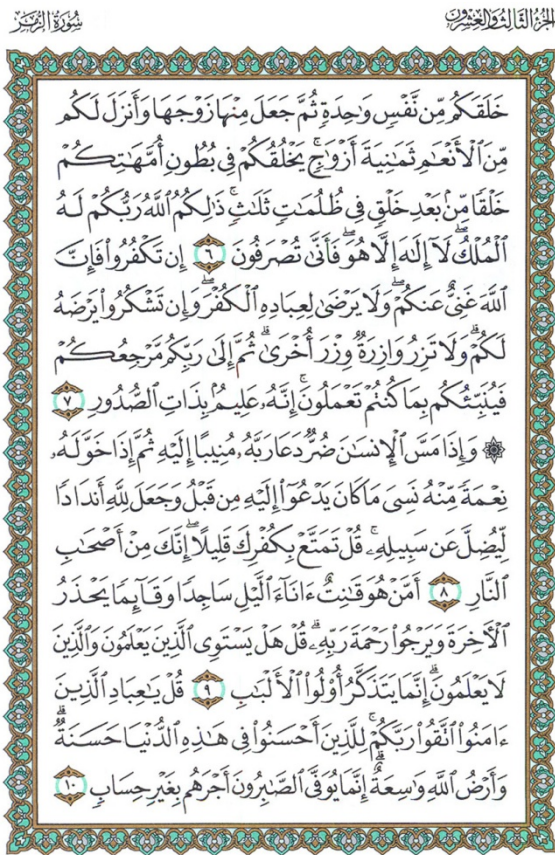 الجزء الثالث والعشرون
سورة الزمر
خَلَقَكُم مِّن نَّفْسٍ وَٰحِدَةٍ ثُمَّ جَعَلَ مِنْهَا زَوْجَهَا وَأَنزَلَ لَكُم
مِّنَ ٱلْأَنْعَٰمِ ثَمَٰنِيَةَ أَزْوَٰجٍ ۚ يَخْلُقُكُمْ فِى بُطُونِ أُمَّهَٰتِكُمْ
خَلْقًا مِّنۢ بَعْدِ خَلْقٍ فِى ظُلُمَٰتٍ ثَلَٰثٍ ۚ ذَٰلِكُمُ ٱللَّهُ رَبُّكُمْ لَهُ
ٱلْمُلْكُ ۖ لَآ إِلَٰهَ إِلَّا هُوَ ۖ فَأَنَّىٰ تُصْرَفُونَ ٦ إِن تَكْفُرُوا۟ فَإِنَّ
ٱللَّهَ غَنِىٌّ عَنكُمْ ۖ وَلَا يَرْضَىٰ لِعِبَادِهِ ٱلْكُفْرَ ۖ وَإِن تَشْكُرُوا۟ يَرْضَهُ
لَكُمْ ۗ وَلَا تَزِرُ وَازِرَةٌ وِزْرَ أُخْرَىٰ ۗ ثُمَّ إِلَىٰ رَبِّكُم مَّرْجِعُكُمْ
فَيُنَبِّئُكُم بِمَا كُنتُمْ تَعْمَلُونَ ۚ إِنَّهُۥ عَلِيمٌۢ بِذَاتِ ٱلصُّدُورِ ٧
۞ وَإِذَا مَسَّ ٱلْإِنسَٰنَ ضُرٌّ دَعَا رَبَّهُۥ مُنِيبًا إِلَيْهِ ثُمَّ إِذَا خَوَّلَهُۥ
نِعْمَةً مِّنْهُ نَسِىَ مَا كَانَ يَدْعُوٓا۟ إِلَيْهِ مِن قَبْلُ وَجَعَلَ لِلَّهِ أَندَادًا
لِّيُضِلَّ عَن سَبِيلِهِۦ ۚ قُلْ تَمَتَّعْ بِكُفْرِكَ قَلِيلًا ۖ إِنَّكَ مِنْ أَصْحَٰبِ
ٱلنَّارِ ٨ أَمَّنْ هُوَ قَٰنِتٌ ءَانَآءَ ٱلَّيْلِ سَاجِدًا وَقَآئِمًا يَحْذَرُ
ٱلْءَاخِرَةَ وَيَرْجُوا۟ رَحْمَةَ رَبِّهِۦ ۗ قُلْ هَلْ يَسْتَوِى ٱلَّذِينَ يَعْلَمُونَ وَٱلَّذِينَ
لَا يَعْلَمُونَ ۗ إِنَّمَا يَتَذَكَّرُ أُو۟لُوا۟ ٱلْأَلْبَٰبِ ٩ قُلْ يَٰعِبَادِ ٱلَّذِينَ
ءَامَنُوا۟ ٱتَّقُوا۟ رَبَّكُمْ ۚ لِلَّذِينَ أَحْسَنُوا۟ فِى هَٰذِهِ ٱلدُّنْيَا حَسَنَةٌ ۗ
وَأَرْضُ ٱللَّهِ وَٰسِعَةٌ ۗ إِنَّمَا يُوَفَّى ٱلصَّٰبِرُونَ أَجْرَهُم بِغَيْرِ حِسَابٍ ١٠